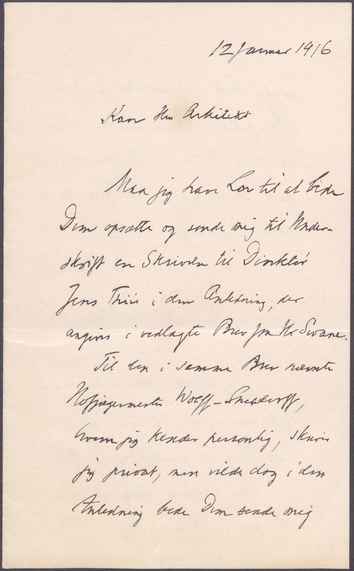 12 Januar 1916
Kære Hr. Arkitekt
Maa jeg have Lov til at bede
Dem opsætte og sende mig til Under-
skrift en Skrivelse til Direktør
Jens Thiis i den Anledning, der
angives i vedlagte Brev fra Hr Swane.
Til den i samme Brev nævnte
Hofjægermester Wolff-Sneedorff,
hvem jeg kender personlig, skriver
jeg privat, men vilde dog i den
Anledning bede Dem sende mig